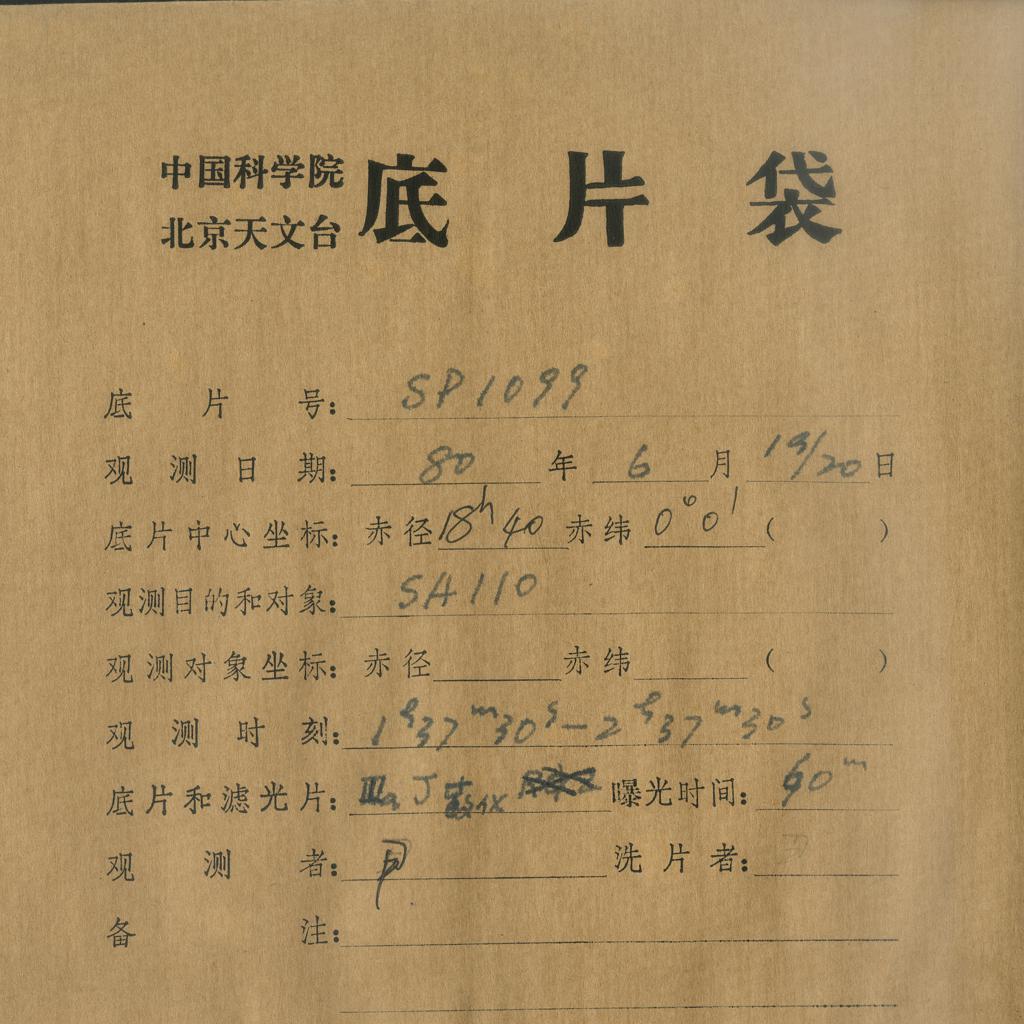 中国科学院
北京天文台
底片袋
底片号: SP1099
观测日期: 80 年 6 月 19/20 日
底片中心坐标: 赤径 18h 40 赤纬 0° 0' ( )
观测目的和对象: SA110
观测对象坐标: 赤径 赤纬 ( )
观测时刻: 1h37m30s-2h37m30s
底片和滤光片: IIIaJ 曝光时间: 60m
观测者: 洗片者:
备注: